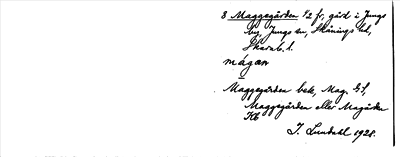 3 Maggegården 1/2 fr, gård i Jungs
by, Jungs sn, Skånings hd,
Skarab. l.
mágan
Maggegården bek, Mag. GS,
Maggegården eller Magården
Kb
J. Lundahl 1928.